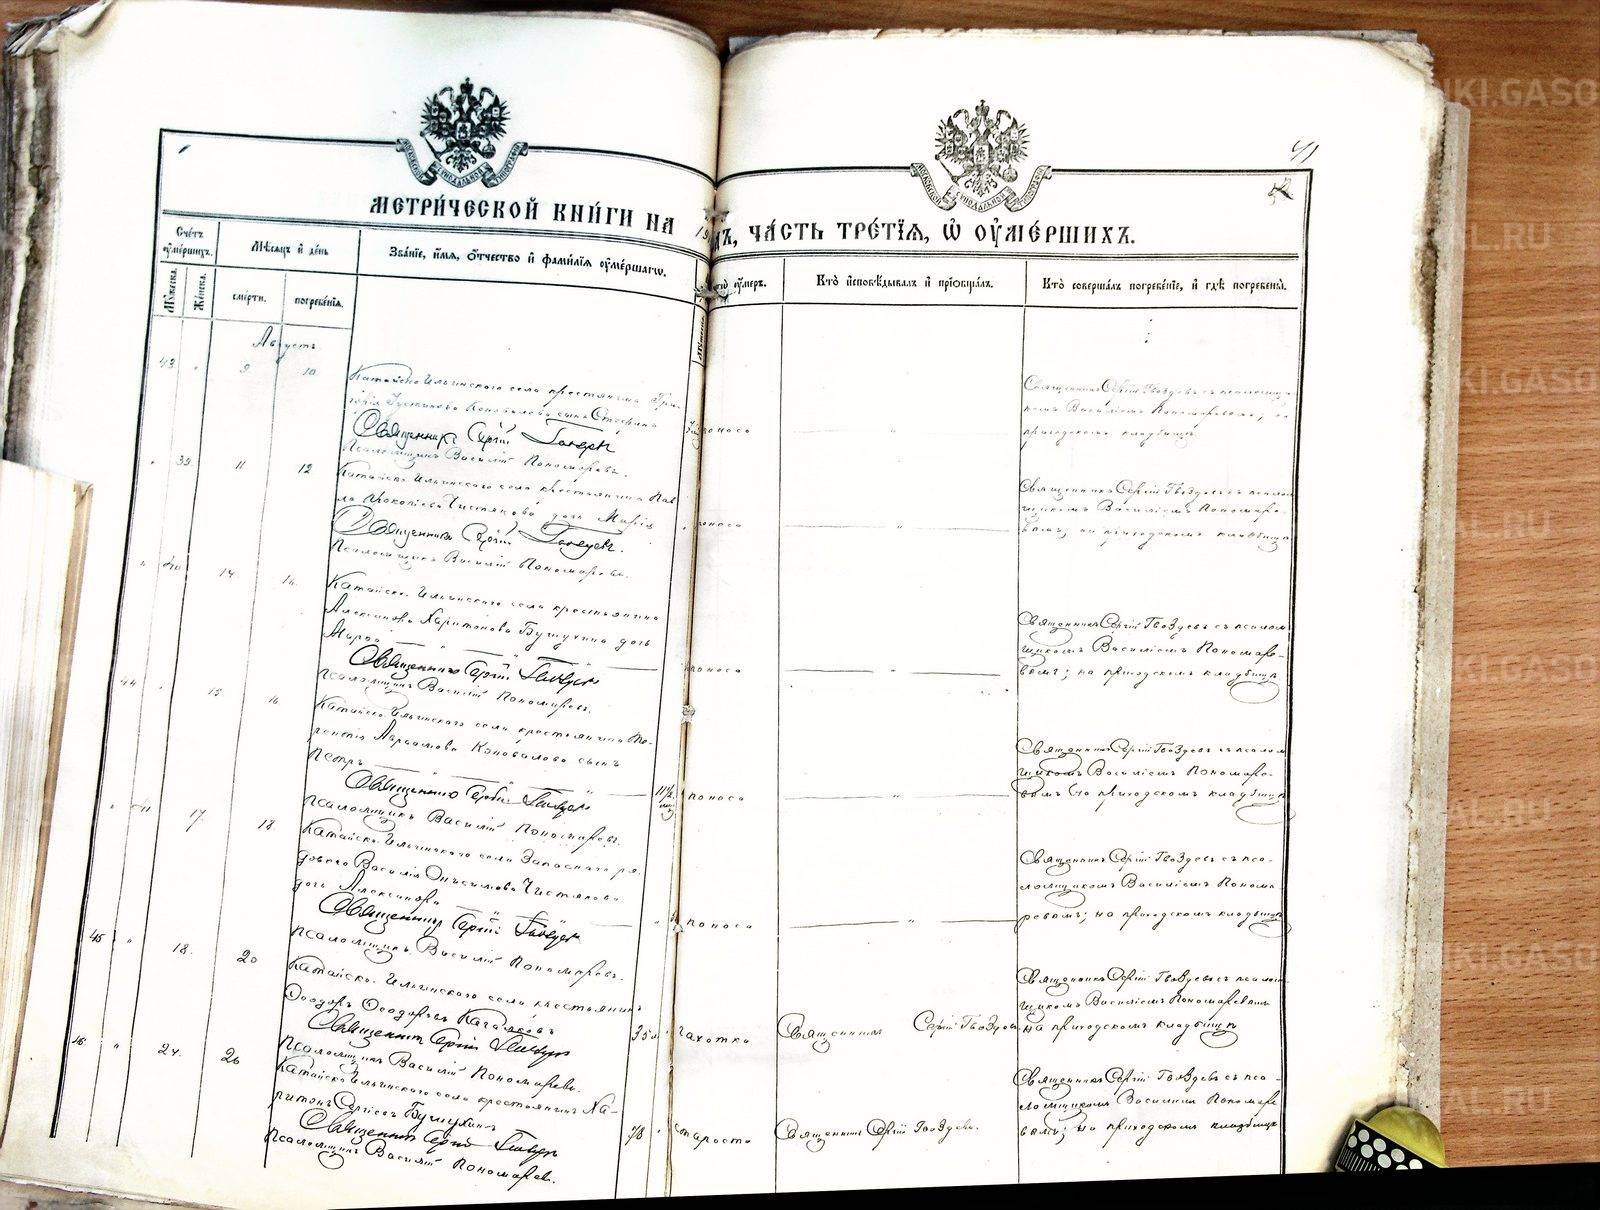 МЕТРИ́ЧЕСКОЙ КНИ́ГИ НА 19 ДЪ, ЧА́СТЬ ТРЕ́ТЇѦ, Ѡ ОУ҆МЕ́РШИХЪ.
41
Сче́тъ оу҆ме́ршихъ.
Мѣ́сѧцъ и҆ де́нь
Зва́нїе, и҆́мѧ, ѻ҆́тчество и҆ фами́лїѧ оу҆ме́ршагѡ.
оу҆́меръ.
Кто̀ и҆сповѣ́дывалъ и҆ прїѡбща́лъ.
Кто̀ соверша́лъ погребе́нїе, и҆ гдѣ̀ погребены̀.
Мꙋ́жеска.
Же́нска.
сме́рти.
погребе́нїѧ.
Августъ
43 " 9 10
Катайско Ильинского села крестьянина Гри-
горія Устинова Коновалова сынъ Стефанъ
Священникъ Сергій Гвоздевъ
Псаломщикъ Василій Пономаревъ.
поноса
Священникъ Сергій Гвоздевъ съ псаломщи-
комъ Василіемъ Пономаревымъ, на
приходскомъ кладбищѣ
" 39 11 12
Катайско Ильинского села крестьянина Пав-
ла Прокопіева Чистякова дочь Марія
Священникъ Сергій Гвоздевъ.
Псаломщикъ Василій Пономаревъ.
поноса
Священникъ Сергій Гвоздевъ съ псалом-
щикомъ Василіемъ Пономаре-
вымъ, на приходскомъ кладбищѣ
" 40 14 16
Катайско-Ильинского села крестьянина
Александра Харитонова Бушухина дочь
Марѳа
Священникъ Сергій Гвоздевъ
Псаломщикъ Василій Пономаревъ.
поноса
Священникъ Сергій Гвоздевъ съ псалом
щикомъ Василіемъ Пономаре-
вымъ; на приходскомъ кладбищѣ
44 " 15 16
Катайско Ильинского села крестьянина
Авраамова Коновалова сынъ
Петръ
Священникъ Сергій Гвоздевъ
Псаломщикъ Василій Пономаревъ.
11½ мѣс
поноса
Священникъ Сергій Гвоздевъ съ псалом
щикомъ Василіемъ Пономаре-
вымъ на приходскомъ кладбищѣ
" 41 17. 18
Катайско-Ильинского села Запасного ря-
дового Василія Онисимова Чистякова
дочь Александра
Священникъ Сергій Гвоздевъ
Псаломщикъ Василій Пономаревъ.
поноса
Священникъ Сергій Гвоздевъ съ пса-
ломщикомъ Василіемъ Понома
ревымъ; на приходскомъ кладбищѣ
45 " 18. 20
Катайско-Ильинского села крестьянинъ
Ѳеодоръ Ѳеодоровъ
Священникъ Сергій Гвоздевъ
Псаломщикъ Василій Пономаревъ.
35 л
Чахотка
Священникъ Сергій Гвоздевъ
Священникъ Сергій Гвоздевъ съ псалом-
щикомъ Василіемъ Пономаревымъ
на приходскомъ кладбищѣ
46. " 24. 26
Катайско Ильинского села крестьянинъ Ха-
ритонъ Сергіевъ Бушухинъ
Священникъ Сергій Гвоздевъ
Псаломщикъ Василій Пономаревъ.
78 "
Старость
Священникъ Сергій Гвоздевъ.
Священникъ Сергій Гвоздевъ съ пса-
ломщикомъ Василіемъ Пономаре
вымъ; на приходскомъ кладбищѣ